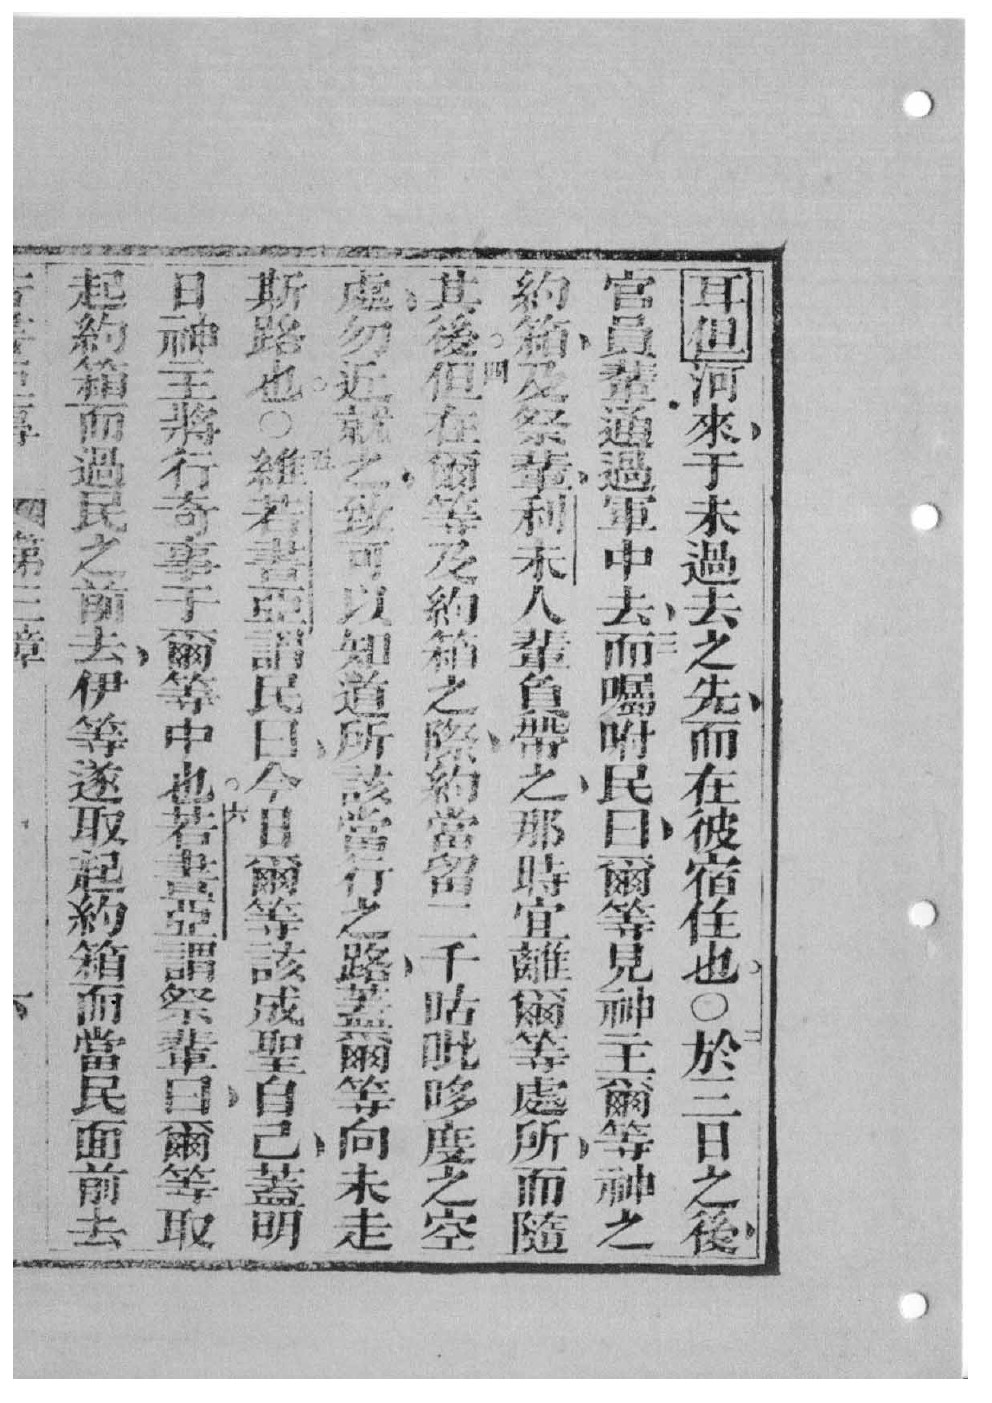 耳但河來、于未過去之先、而在彼宿住也。○二於三日之後、
官員輩通過軍中去、三而囑咐民曰、爾等見神主爾等神之
約箱、及祭輩、利未人輩負帶之、那時宜離爾等處所、而隨
其後。四但在爾等及約箱之際、約當留二千咕吡哆度之空
處、勿近就之、致可以知道所該當行之路、蓋爾等向未走
斯路也。○五維若書亞謂民曰、今日爾等該成聖自己、蓋明
日神主將行奇事于爾等中也。六若書亞謂祭輩曰、爾等取
起約箱而過民之前去、伊等遂取起約箱而當民面前去
第三章